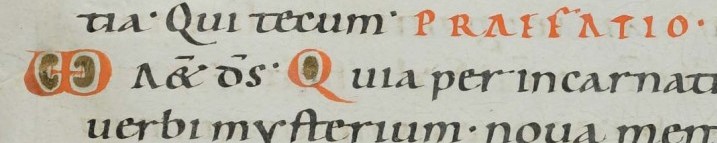 tia· Qui tecum· PRAEFATIO·
UD A&̄ d̄s· Quia per incarnati
uerbi mysterium· noua men